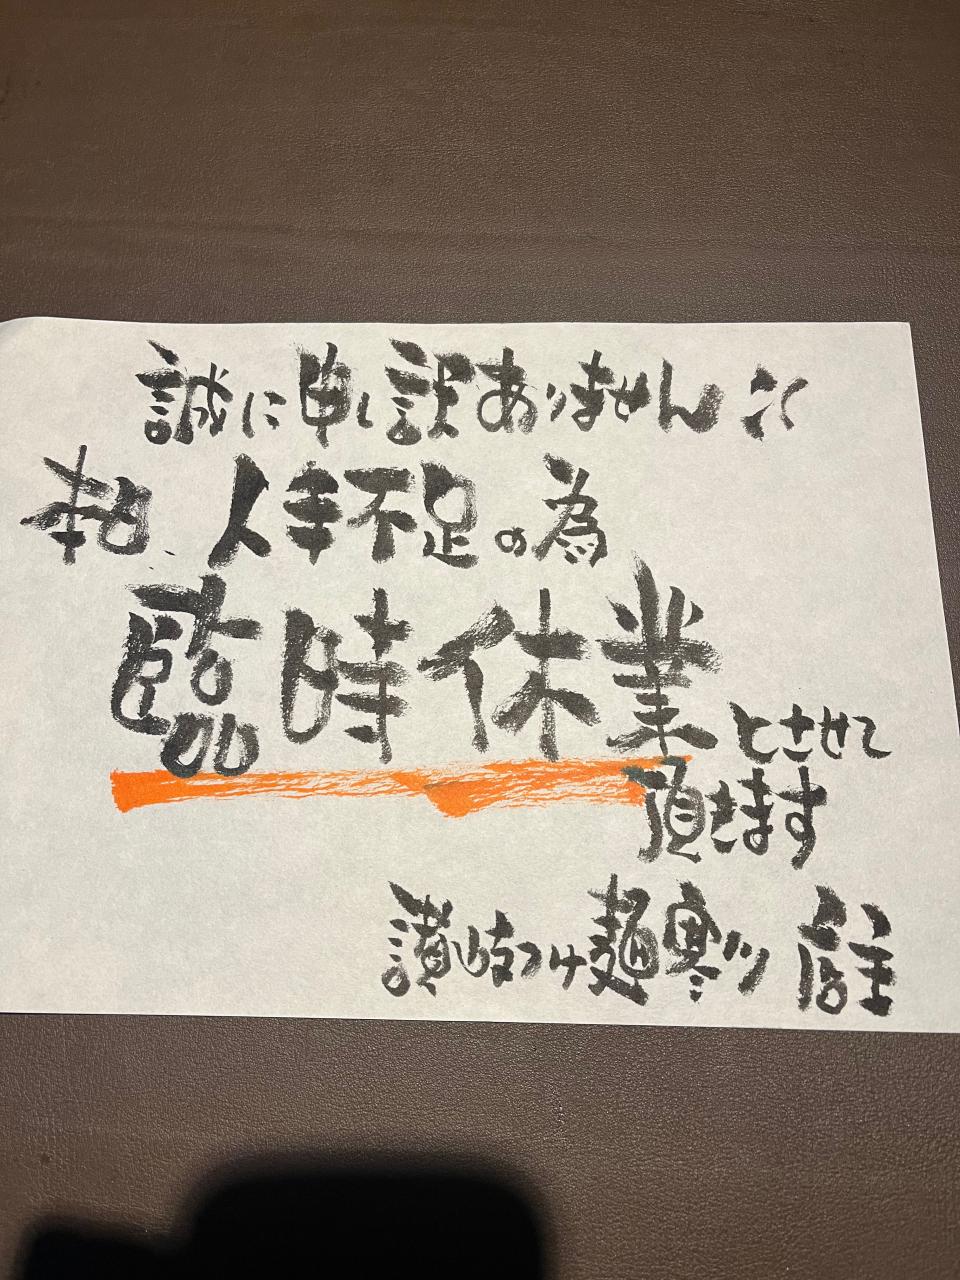 誠に申し訳ありません
本日、人手不足の為
臨時休業とさせて
頂きます
讃岐つけ麺寒川 店主